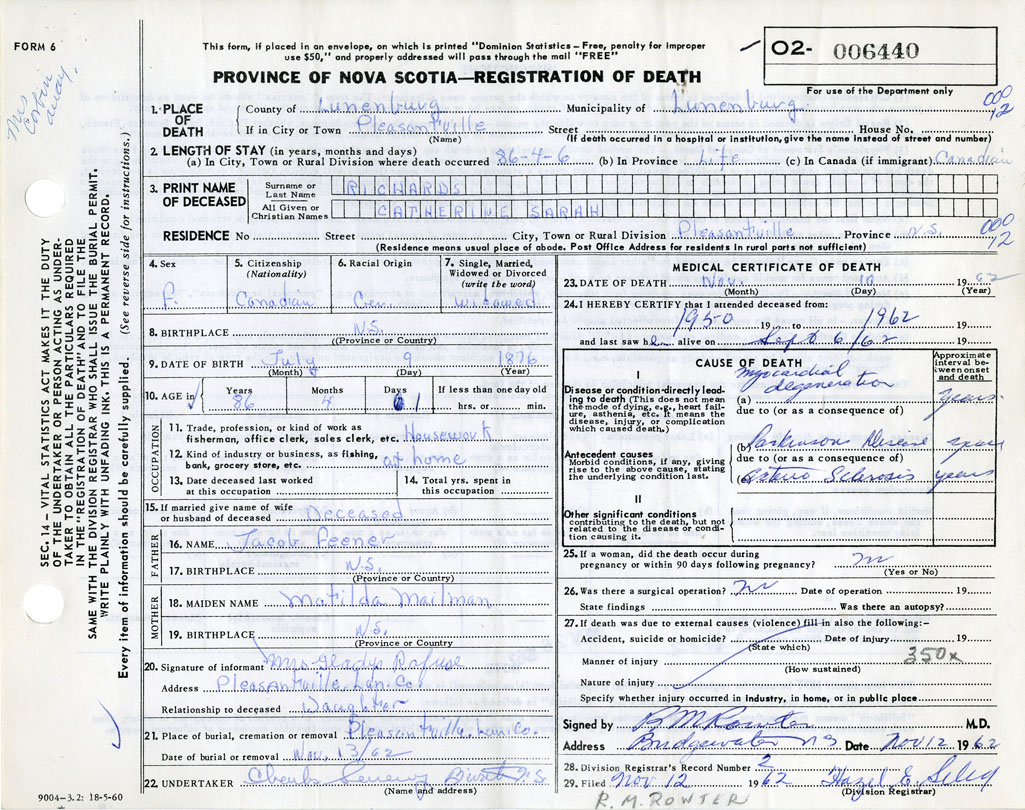 FORM 6
This form, if placed in an envelope, on which is printed "Dominion Statistics – Free, penalty for improper
use $50," and properly addressed will pass through the mail "FREE"
PROVINCE OF NOVA SCOTIA—REGISTRATION OF DEATH
02- 006440
For use of the Department only
SEC. 14 – VITAL STATISTICS ACT MAKES IT THE DUTY
OF THE UNDERTAKER OR PERSON ACTING AS UNDER-
TAKER TO OBTAIN ALL THE PARTICULARS REQUIRED
IN THE "REGISTRATION OF DEATH" AND TO FILE THE
SAME WITH THE DIVISION REGISTRAR WHO SHALL ISSUE THE BURIAL PERMIT.
WRITE PLAINLY WITH UNFADING INK. THIS IS A PERMANENT RECORD.
Every item of information should be carefully supplied. (See reverse side for instructions.)
1. PLACE OF DEATH
County of Lunenburg Municipality of Lunenburg 000 12
If in City or Town Pleasantville Street House No.
(Name) (If death occurred in a hospital or institution, give the name instead of street and number)
2. LENGTH OF STAY (in years, months and days)
(a) In City, Town or Rural Division where death occurred 86-4-6 (b) In Province Life (c) In Canada (if immigrant) Canadian
3. PRINT NAME OF DECEASED
Surname or Last Name RICHARDS
All Given or Christian Names CATHERINE SARAH
RESIDENCE No Street City, Town or Rural Division Pleasantville Province N.S. 000 12
(Residence means usual place of abode. Post Office Address for residents in rural parts not sufficient)
4. Sex 5. Citizenship (Nationality) 6. Racial Origin 7. Single, Married, Widowed or Divorced (write the word)
F. Canadian Ger. Widowed
8. BIRTHPLACE N.S.
(Province or Country)
9. DATE OF BIRTH July 9 1876
(Month) (Day) (Year)
10. AGE in Years Months Days If less than one day old
86 4 1 hrs. or min.
OCCUPATION
11. Trade, profession, or kind of work as
fisherman, office clerk, sales clerk, etc. Housework
12. Kind of industry or business, as fishing,
bank, grocery store, etc. at home
13. Date deceased last worked at this occupation
14. Total yrs. spent in this occupation
15. If married give name of wife
or husband of deceased Deceased
FATHER
16. NAME Jacob Feener
17. BIRTHPLACE N.S.
(Province or Country)
MOTHER
18. MAIDEN NAME Matilda Mailman
19. BIRTHPLACE N.S.
(Province or Country
20. Signature of informant Mrs Gladys Rafuse
Address Pleasantville Lun. Co.
Relationship to deceased Daughter
21. Place of burial, cremation or removal Pleasantville Lun Co.
Date of burial or removal Nov. 13/62
22. UNDERTAKER N.S.
(Name and address)
9004-3.2: 18-5-60
MEDICAL CERTIFICATE OF DEATH
23. DATE OF DEATH Nov. 10 1962
(Month) (Day) (Year)
24. I HEREBY CERTIFY that I attended deceased from:
1950 19 to 1962 19
and last saw h alive on Sept 6/62 19
CAUSE OF DEATH
Approximate interval between onset and death
I
Disease or condition directly lead-
ing to death (This does not mean
the mode of dying, e.g., heart fail-
ure, asthenia, etc. It means the
disease, injury, or complication
which caused death.)
(a) myocardial degeneration years
due to (or as a consequence of)
Antecedent causes
Morbid conditions, if any, giving
rise to the above cause, stating
the underlying condition last.
(b) Parkinsons Disease years
due to (or as a consequence of)
(c) Sclerosis years
II
Other significant conditions
contributing to the death, but not
related to the disease or condi-
tion causing it.
25. If a woman, did the death occur during
pregnancy or within 90 days following pregnancy? no
(Yes or No)
26. Was there a surgical operation? no Date of operation 19
State findings Was there an autopsy?
27. If death was due to external causes (violence) fill in also the following:–
Accident, suicide or homicide? Date of injury 19
(State which)
Manner of injury 350x
(How sustained)
Nature of injury
Specify whether injury occurred in industry, in home, or in public place
Signed by B M Rowter M.D.
Address Bridgewater NS Date Nov 12 1962
28. Division Registrar's Record Number 2
29. Filed Nov 12 1962 Hazel E.
(Division Registrar)
R. M. ROWTER